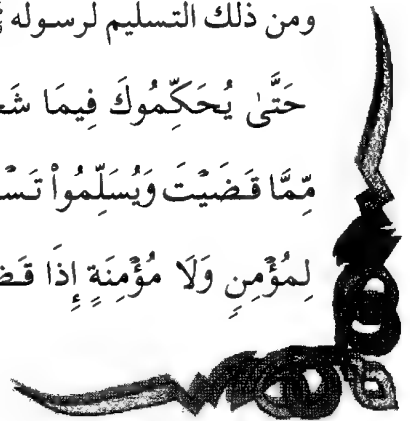 ومن ذلك التسليم لرسوله
حَتَّىٰ يُحَكِّمُوكَ فِيمَا
مِّمَّا قَضَيْتَ وَيُسَلِّمُواْ
لِمُؤْمِنٍ وَلَا مُؤْمِنَةٍ إِذَا